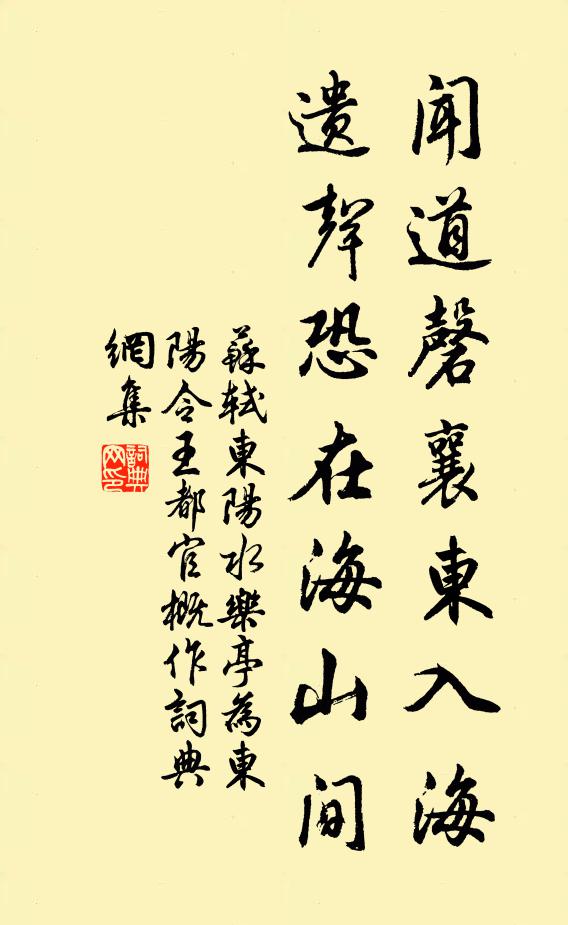 聞道磬襄東入海
遺聲恐在海山間
蘇軾東陽水樂亭為東
陽令王都官概作詞典
網集
詞典
网印